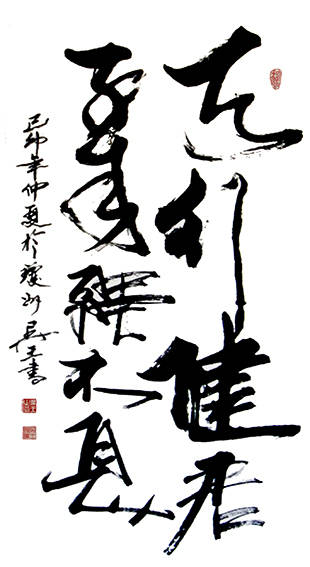 天行健君
子自強不息
己卯年仲夏於瓊州書